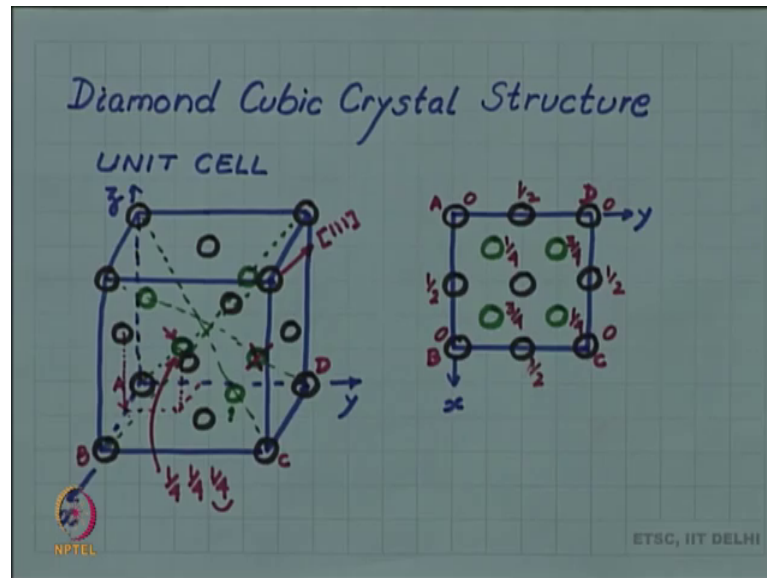 Diamond Cubic Crystal Structure
UNIT CELL
z
[111]
A
D
y
B
C
1/4 1/4 1/4
x
A 0 1/2 D 0 y
1/4 3/4
1/2 1/2
3/4 1/4
0 0
B 1/2 C
x
NPTEL
ETSC, IIT DELHI